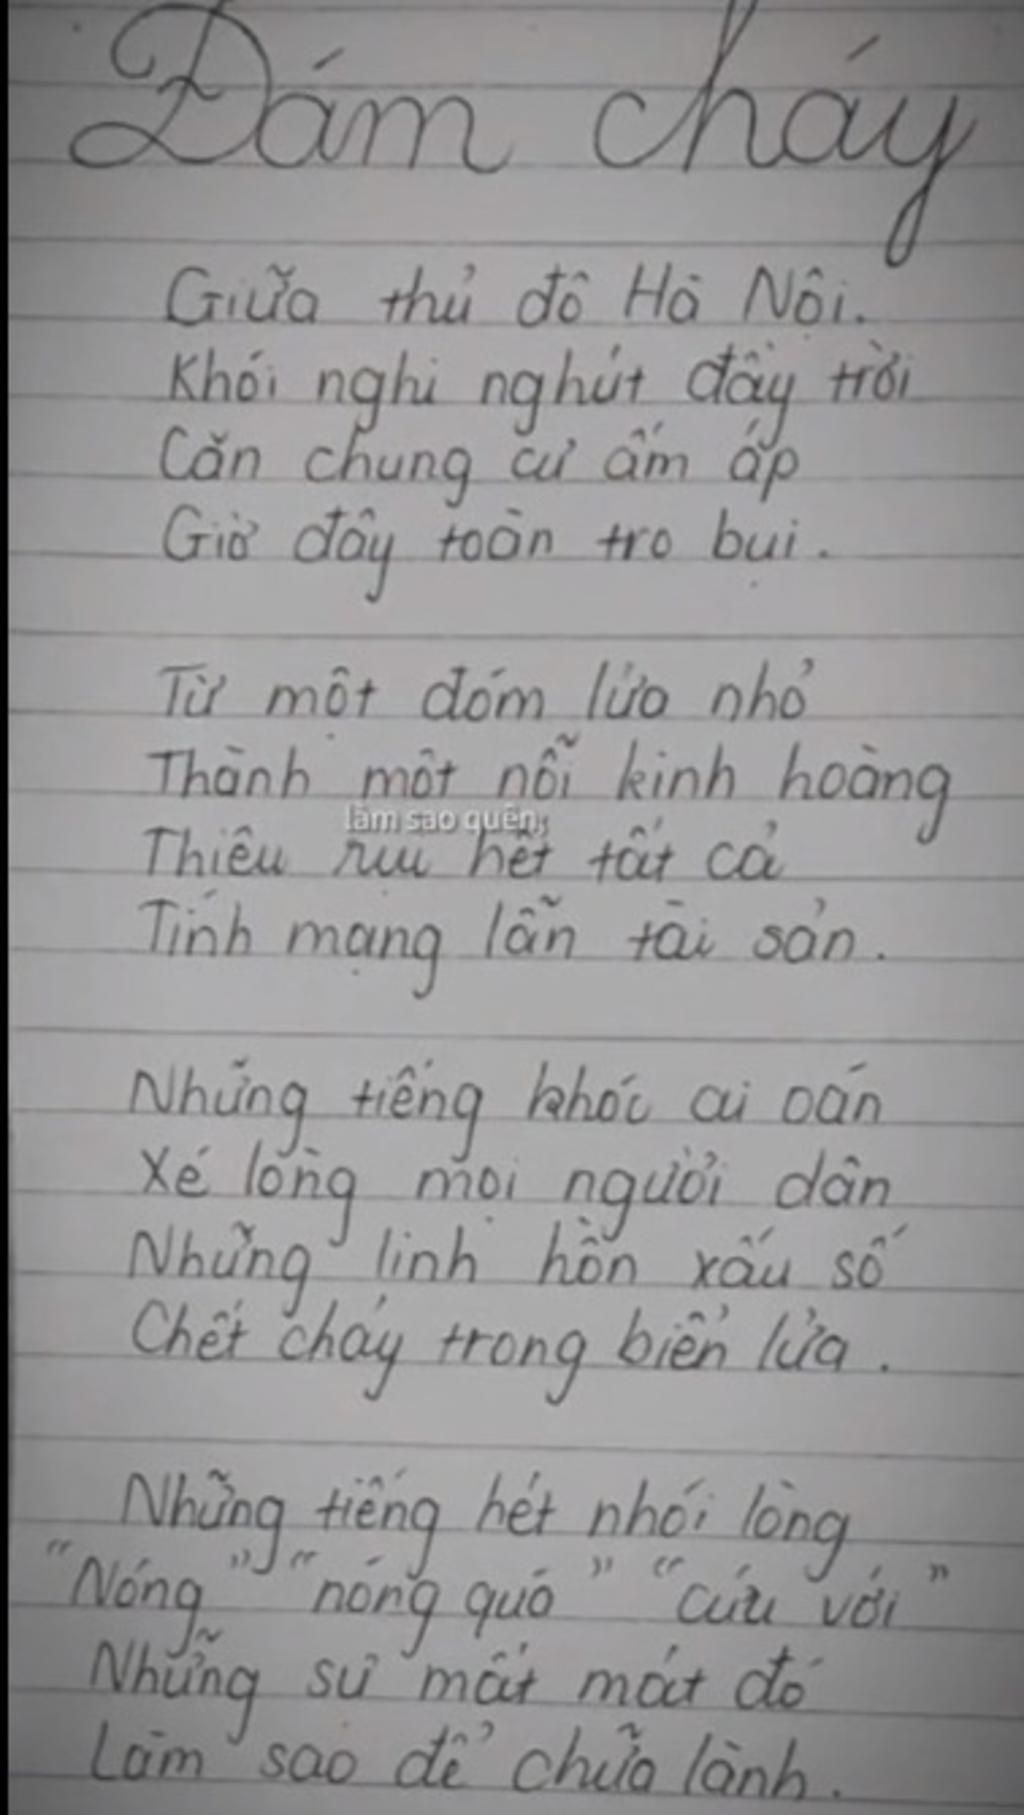 Đám cháy
Giữa thủ đô Hà Nội.
Khói nghi nghút đầy trời
Căn chung cư ấm áp
Giờ đây toàn tro bụi.
Từ một đóm lửa nhỏ
Thành một nỗi kinh hoàng
làm sao quên,
Thiêu rụi hết tất cả
Tính mạng lẫn tài sản.
Những tiếng khóc ai oán
Xé lòng mọi người dân
Những linh hồn xấu số
Chết cháy trong biển lửa.
Những tiếng hét nhói lòng
"Nóng" "nóng quá" "cứu với"
Những sự mất mát đó
Làm sao để chữa lành.